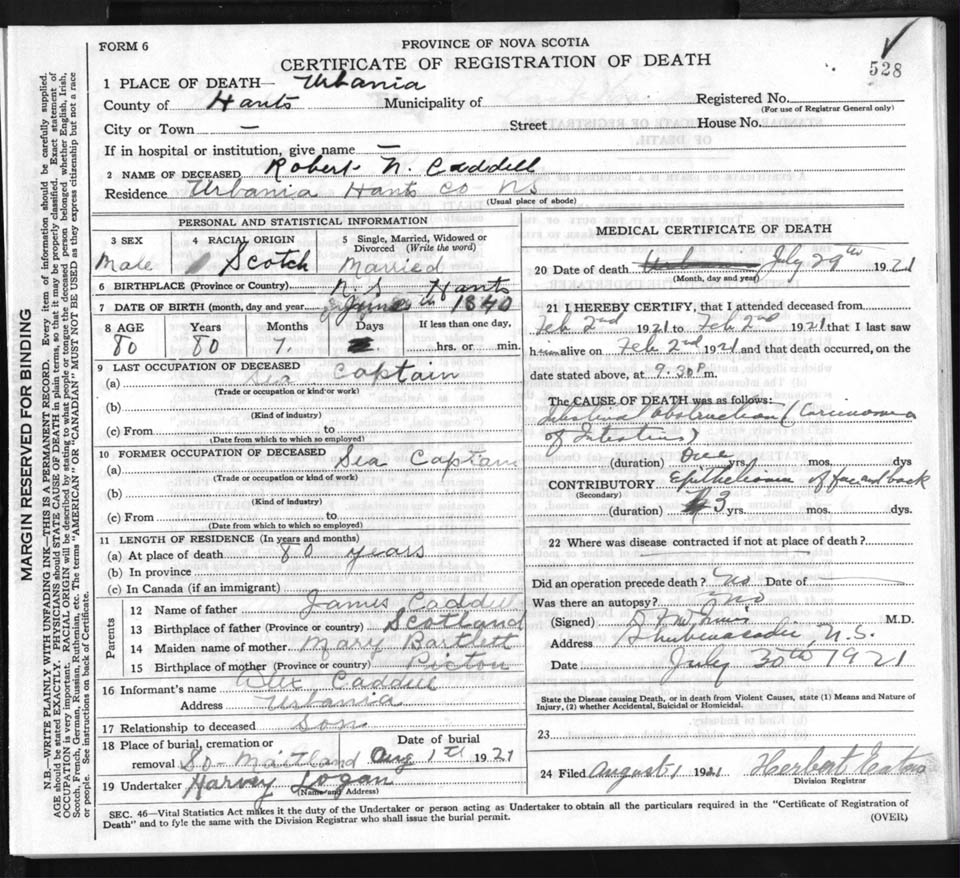 FORM 6
PROVINCE OF NOVA SCOTIA
CERTIFICATE OF REGISTRATION OF DEATH
528
1 PLACE OF DEATH— Urbania
County of Hants Municipality of Registered No.
(For use of Registrar General only)
City or Town — Street House No.
If in hospital or institution, give name —
2 NAME OF DECEASED Robert N. Caddell
Residence Urbania Hants Co NS
(Usual place of abode)
PERSONAL AND STATISTICAL INFORMATION
3 SEX Male
4 RACIAL ORIGIN Scotch
5 Single, Married, Widowed or Divorced (Write the word) Married
6 BIRTHPLACE (Province or Country) N.S. Hants
7 DATE OF BIRTH (month, day and year) 1840
8 AGE Years Months Days If less than one day,
80 80 7. hrs. or min.
9 LAST OCCUPATION OF DECEASED
(a) Sea Captain
(Trade or occupation or kind of work)
(b)
(Kind of industry)
(c) From to
(Date from which to which so employed)
10 FORMER OCCUPATION OF DECEASED
(a) Sea Captain
(Trade or occupation or kind of work)
(b)
(Kind of industry)
(c) From to
(Date from which to which so employed)
11 LENGTH OF RESIDENCE (In years and months)
(a) At place of death 80 years
(b) In province
(c) In Canada (if an immigrant)
Parents
12 Name of father James Caddell
13 Birthplace of father (Province or country) Scotland
14 Maiden name of mother Mary Bartlett
15 Birthplace of mother (Province or country) Pictou
16 Informant's name Alex Caddell
Address Urbania
17 Relationship to deceased Son
18 Place of burial, cremation or removal So- Maitland Date of burial Aug 1st 1921
19 Undertaker Harvey Logan
(Name and Address)
MEDICAL CERTIFICATE OF DEATH
20 Date of death July 29th 1921
(Month, day and year)
21 I HEREBY CERTIFY, that I attended deceased from
Feb 2nd 1921 to Feb 2nd 1921 that I last saw
him alive on Feb 2nd 1921 and that death occurred, on the
date stated above, at 9.30 P m.
The CAUSE OF DEATH was as follows:
Intestinal Obstruction (Carcinoma
of Intestins)
(duration) One yrs. mos. dys
CONTRIBUTORY Epithelioma of face and back
(Secondary)
(duration) 3 yrs. mos. dys.
22 Where was disease contracted if not at place of death?
Did an operation precede death? No Date of
Was there an autopsy? no
(Signed) M.D.
Address Shubenacadie, N.S.
Date July 30th 1921
State the Disease causing Death, or in death from Violent Causes, state (1) Means and Nature of
Injury, (2) whether Accidental, Suicidal or Homicidal.
23
24 Filed August 1 1921 Herbert Eaton
Division Registrar
SEC. 46—Vital Statistics Act makes it the duty of the Undertaker or person acting as Undertaker to obtain all the particulars required in the "Certificate of Registration of
Death" and to fyle the same with the Division Registrar who shall issue the burial permit.
(OVER)
MARGIN RESERVED FOR BINDING
N.B.—WRITE PLAINLY WITH UNFADING INK—THIS IS A PERMANENT RECORD. Every item of information should be carefully supplied.
AGE should be stated EXACTLY. PHYSICIANS should STATE CAUSE OF DEATH in plain terms, so that it may be properly classified. Exact statement of
OCCUPATION is very important. RACIAL ORIGIN will be described by stating to what people or tongue the deceased person belonged whether English, Irish,
Scotch, French, German, Russian, Ruthenian, etc. The terms "AMERICAN" OR "CANADIAN" MUST NOT BE USED as they express citizenship but not a race
or people. See instructions on back of Certificate.